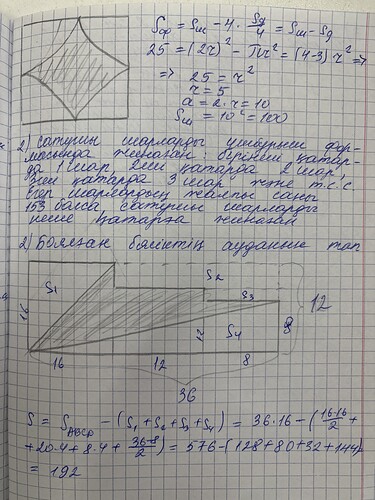 Sфр = Sш - 4 · Sд/4 = Sш - Sд
25 = (2r)² - Πr² = (4-3) r² =>
=> 25 = r²
r = 5
a = 2 · r = 10
Sш = 10² = 100
2) Сатушы шарларды үшбұрыш фор-
масында жинаған. Бірінші қатар-
да 1 шар, 2ші қатарда 2 шар,
3ші қатарда 3 шар және т.с.с
Егер шарлардың жалпы саны
153 болса, сатушы шарларды
неше қатарға жинаған
2) Боялған бөліктің ауданын тап
S1
S2
S3
S4
16
12
8
12
16
12
8
36
S = SABCD - (S1 + S2 + S3 + S4) = 36·16 - (16·16/2 +
+ 20·4 + 8·4 + 36·8/2) = 576 - (128 + 80 + 32 + 144)
= 192